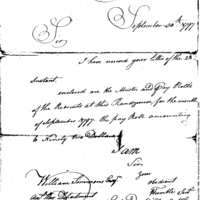 September 30th 1797
Sir
I have received your letter of the 23
Instant
enclosed are the Muster and Pay Rolls
of the Recruits at this Rendezvous, for the month
of September 1797. the pay Roll amounting
to Ninety two Dollars
I am
Sir
Your
William Simmons Esqr. obedient
Humble Servt
War Department